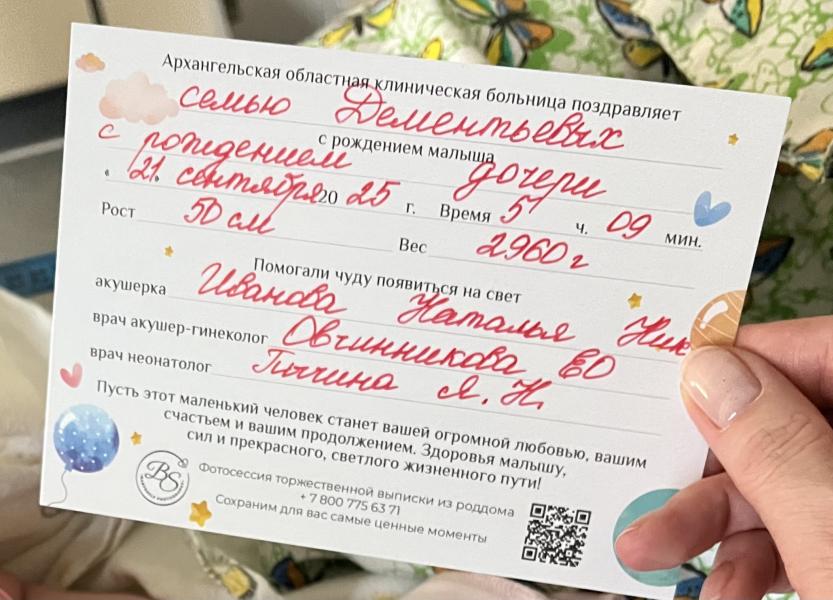 Архангельская областная клиническая больница поздравляет
семью Дементьевых
с рождением малыша
с рождением дочери
" 21. сентября 20 25 г. Время 5 ч. 09 мин.
Рост 50 см Вес 2960 г
Помогали чуду появиться на свет
акушерка Иванова Наталья Ник
врач акушер-гинеколог Овчинникова ЕО
врач неонатолог А. Н.
Пусть этот маленький человек станет вашей огромной любовью, вашим
счастьем и вашим продолжением. Здоровья малышу,
сил и прекрасного, светлого жизненного пути!
BS
Фотосессия торжественной выписки из роддома
+ 7 800 775 63 71
Сохраним для вас самые ценные моменты